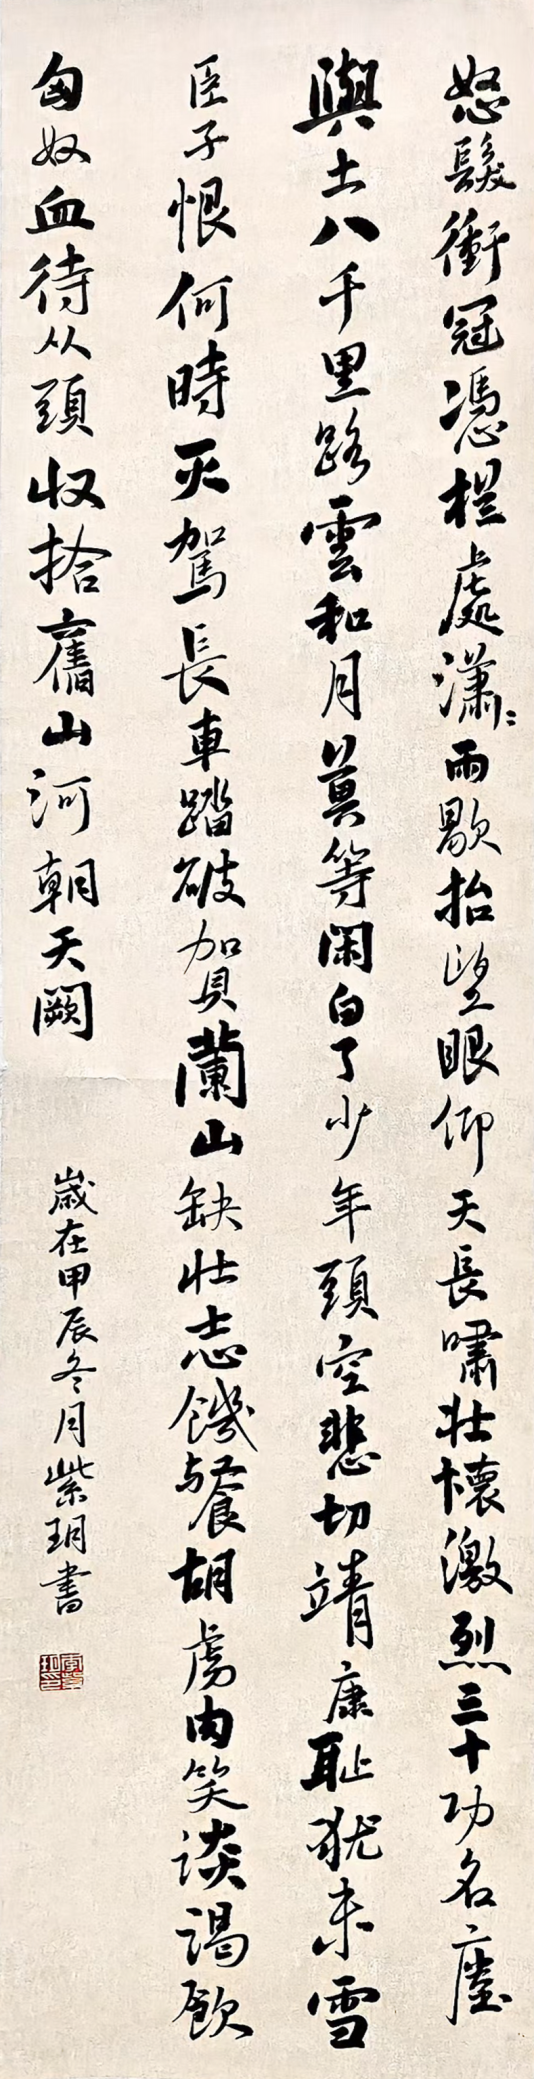 怒髮衝冠憑欄處潇〻雨歇抬望眼仰天長嘯壯懷激烈三十功名塵
與土八千里路雲和月莫等閑白了少年頭空悲切靖康耻犹未雪
臣子恨何時灭駕長車踏破賀蘭山缺壯志饑餐胡虜肉笑談渴飲
匈奴血待从頭收拾舊山河朝天闕
歲在甲辰冬月紫玥書